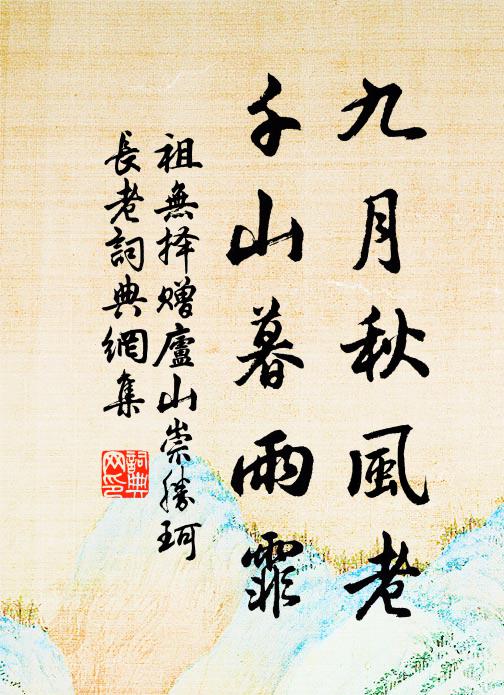 九月秋風老
千山暮雨霏
祖無择赠廬山崇勝珂
長老詞典網集
詞典
网印